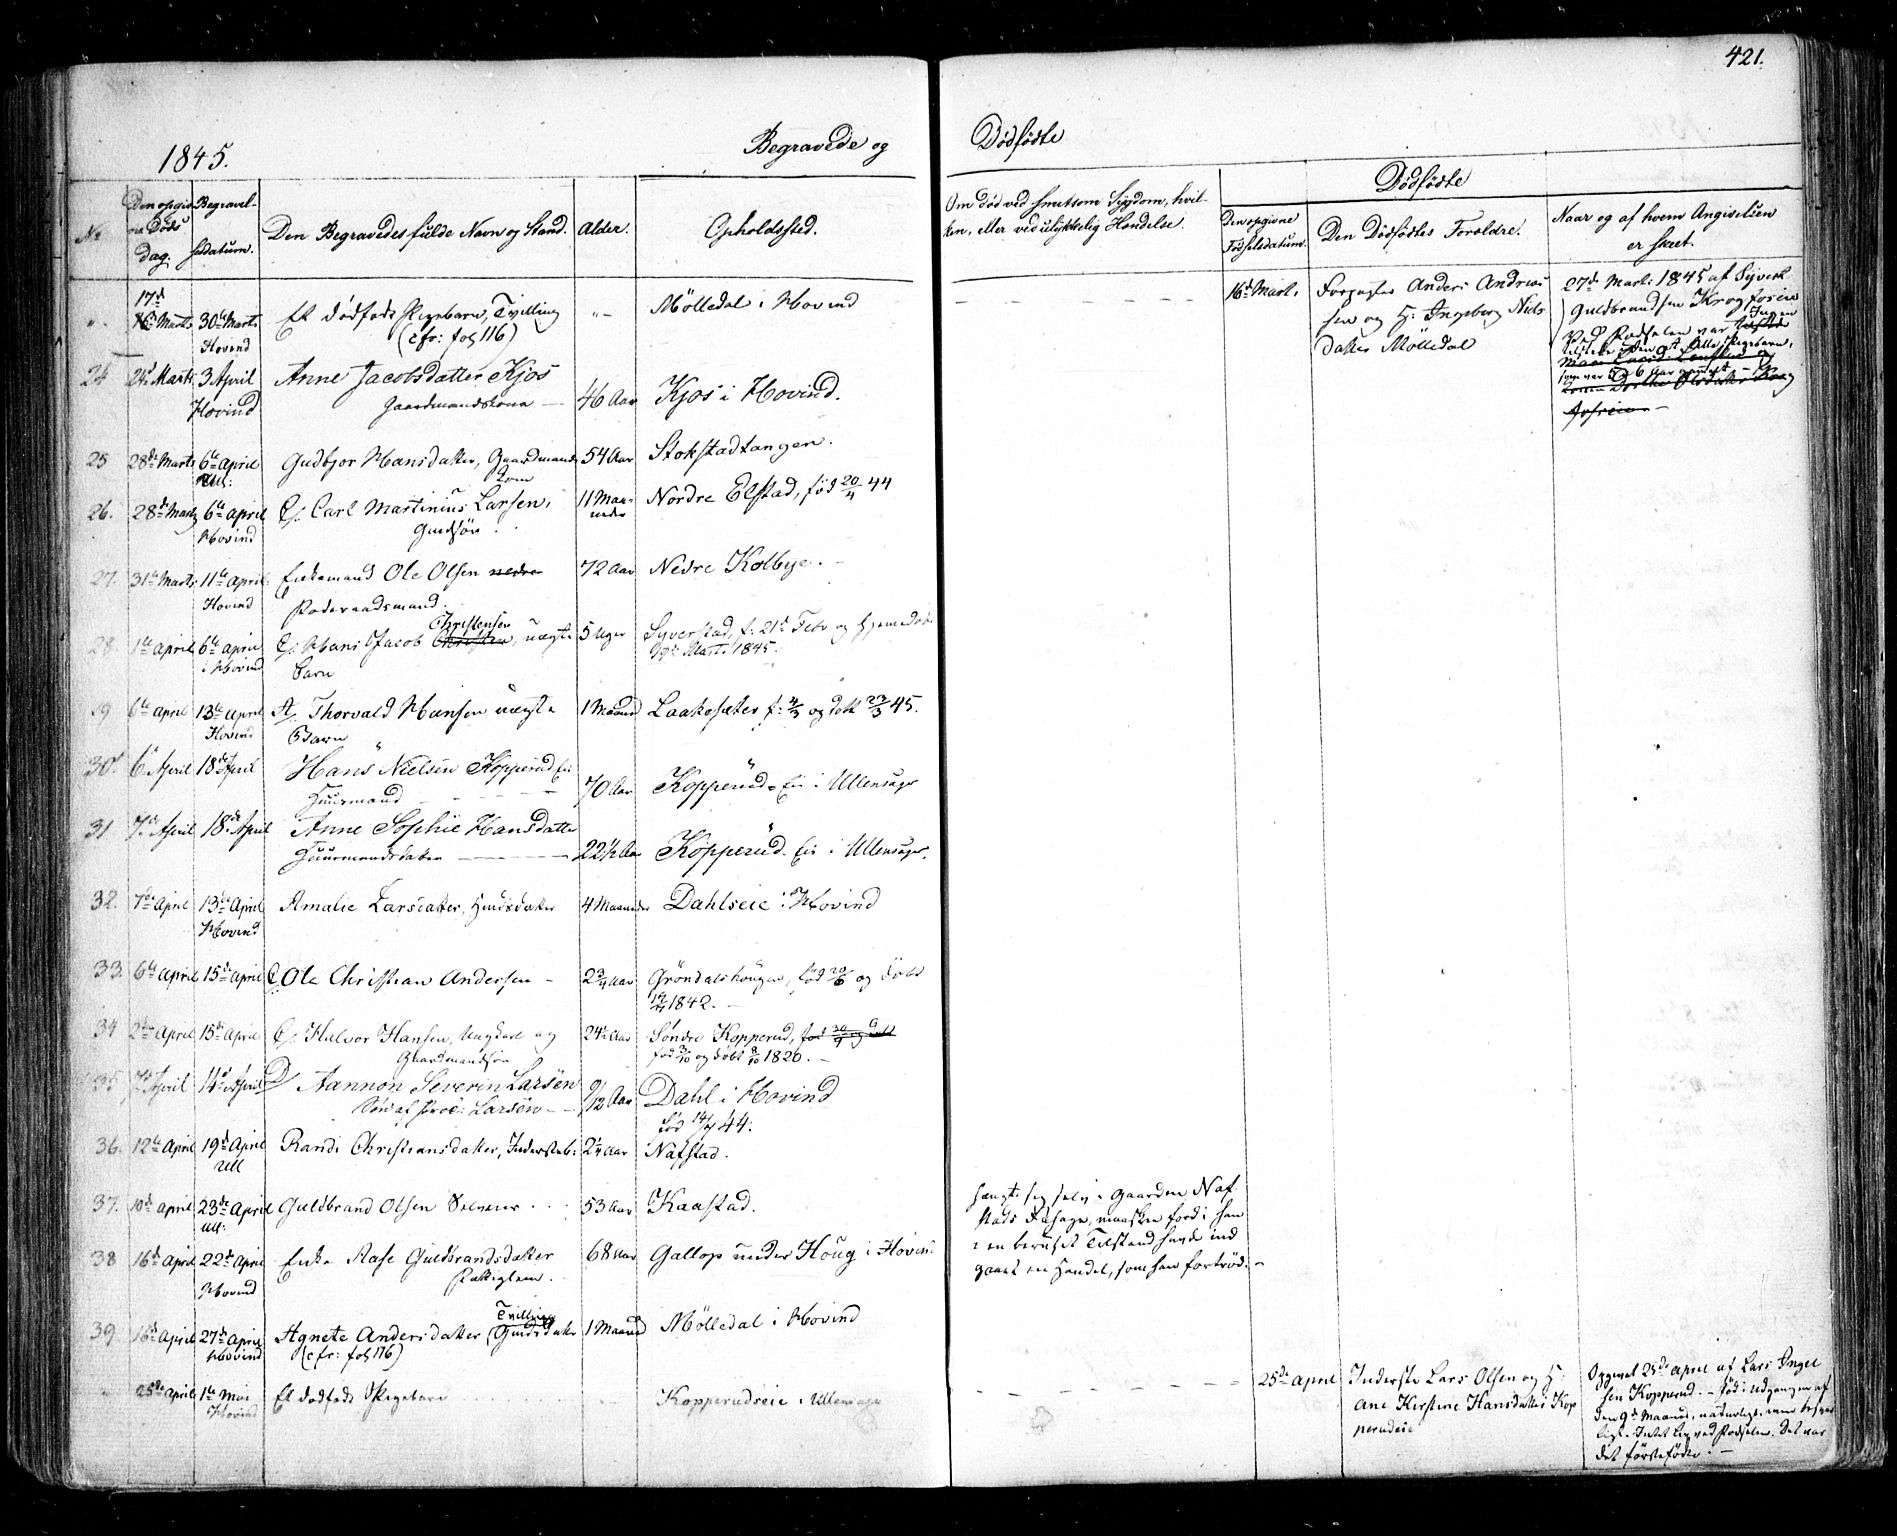 421.
1845.
Begravede og
Dødfødte
No
Den opgivne Døds dag.
Begravelsesdatum.
Den Begravedes fulde Navn og Stand.
Alder.
Opholdssted.
Om død ved smitsom Sygdom, hvilken, eller ved ulykkelig Hændelse.
Dødfødte
Den opgivne Fødselsdatum.
Den Dødfødtes Forældre.
Naar og af hvem Angivelsen er skeet.
17d Marts 30te Marts Hovind
Et dødfødt Pigebarn, Tvilling
(cfr: fol 116)
Mölledal i Hovind
16d Marts
Anders Andreassen og H: Ingeborg Nielsdatter Mölledal
27de Marts 1845 af Syver
Guldbrandsen Krogfoseie
24 24d Marts 3 April Hovind
Anne Jacobsdatter Kjos
Gaardmandskone
46 Aar
Kjos i Hovind.
25 28de Marts 6te April Ull:
Gudbjor Hansdatter, Gaardmands Kone
54 Aar
Stokstadtangen.
26. 28de Marts 6te April Hovind
E/. Carl Martinius Larsen,
Gmdsön.
11 Maaneder
Nordre Elstad, föd 20/4 44
27. 31te Marts 11te April Hovind
Enkemand Ole Olsen nedre
Foderaadsmand.
72 Aar
Nedre Kolbye.
28. 1te April 6te April i Hovind
E/. Hans Jacob Christen Christensen, uægte
Barn
5 Uger
Syverstad, f: 21d Febr og hjemmedøbt
Marts 1845.
29 6te April 13te April Hovind
A/. Thorvald Hansen uægte
Barn
1 Maaned
Laakesæter f: 4/3 og døbt 23/3 45.
30. 6te April 18de April
Hans Nielsen Kopperudei
Huusmand
70 Aar
Kopperud-Eie i Ullensager
31 7de April 18de April
Anne Sophie Hansdatter
Huusmandsdatter
22½ Aar
Kopperud. Eie i Ullensager.
32. 7de April 13de April Hovind
Amalie Larsdatter, Hmdsdatter
4 Maaneder
Dahlseie i Hovind
33. 6te April 15de April
E/. Ole Christian Andersen
2¾ Aar
Gröndalshougen, föd 20/6 og döbt
1842.
34 2de April 15de April
E/. Halvor Hansen, Ungkarl og
Gaardmandssön
24½ Aar
Söndre Kopperud,
föd 3/10 og döbt 8/10 1820.
35 7de April 14d April
D/ Aannon Severin Larsen
Sön af Proc: Larsen
9/12 Aar
Dahl i Hovind
föd 14/7 44.
36. 12te April 19de April Ull
Randi Christiansdatter, Indersteb:
2¼ Aar
Nafstad.
37. 10de April 23de April Ull:
Guldbrand Olsen Selveier
53 Aar
Kaastad.
hængte sig selv i Gaarden Naf-
stads Ladhage, maaskee fordi han
i en beruset Tilstand havde ind
gaaet en Handel, som han fortröd.
38 16de April 22de April Hovind
Enke Aase Guldbrandsdatter
Fattiglem.
68 Aar
Gallop under Houg i Hovind
39 16de April 27de April Hovind
Agnete Andersdatter (Gmdsdatter Tvilling
(cfr: fol 116)
1 Maaned
Mölledal i Hovind
25de April 1te Mai Hovind
Et dödfödt Pigebarn
Kopperudseie i Ullensager
25de April
Inderste Lars Olsen og H:
Ane Kirstine Hansdatter Kop
perudeie
Opgivet 25de April af Lars Ingel
sen Kopperud. – Föd i Udgangen af
den 9de Maaned, naturligt, men besvær
ligt. Intet Liv ved Födselen. Det var
det förstefödte. –